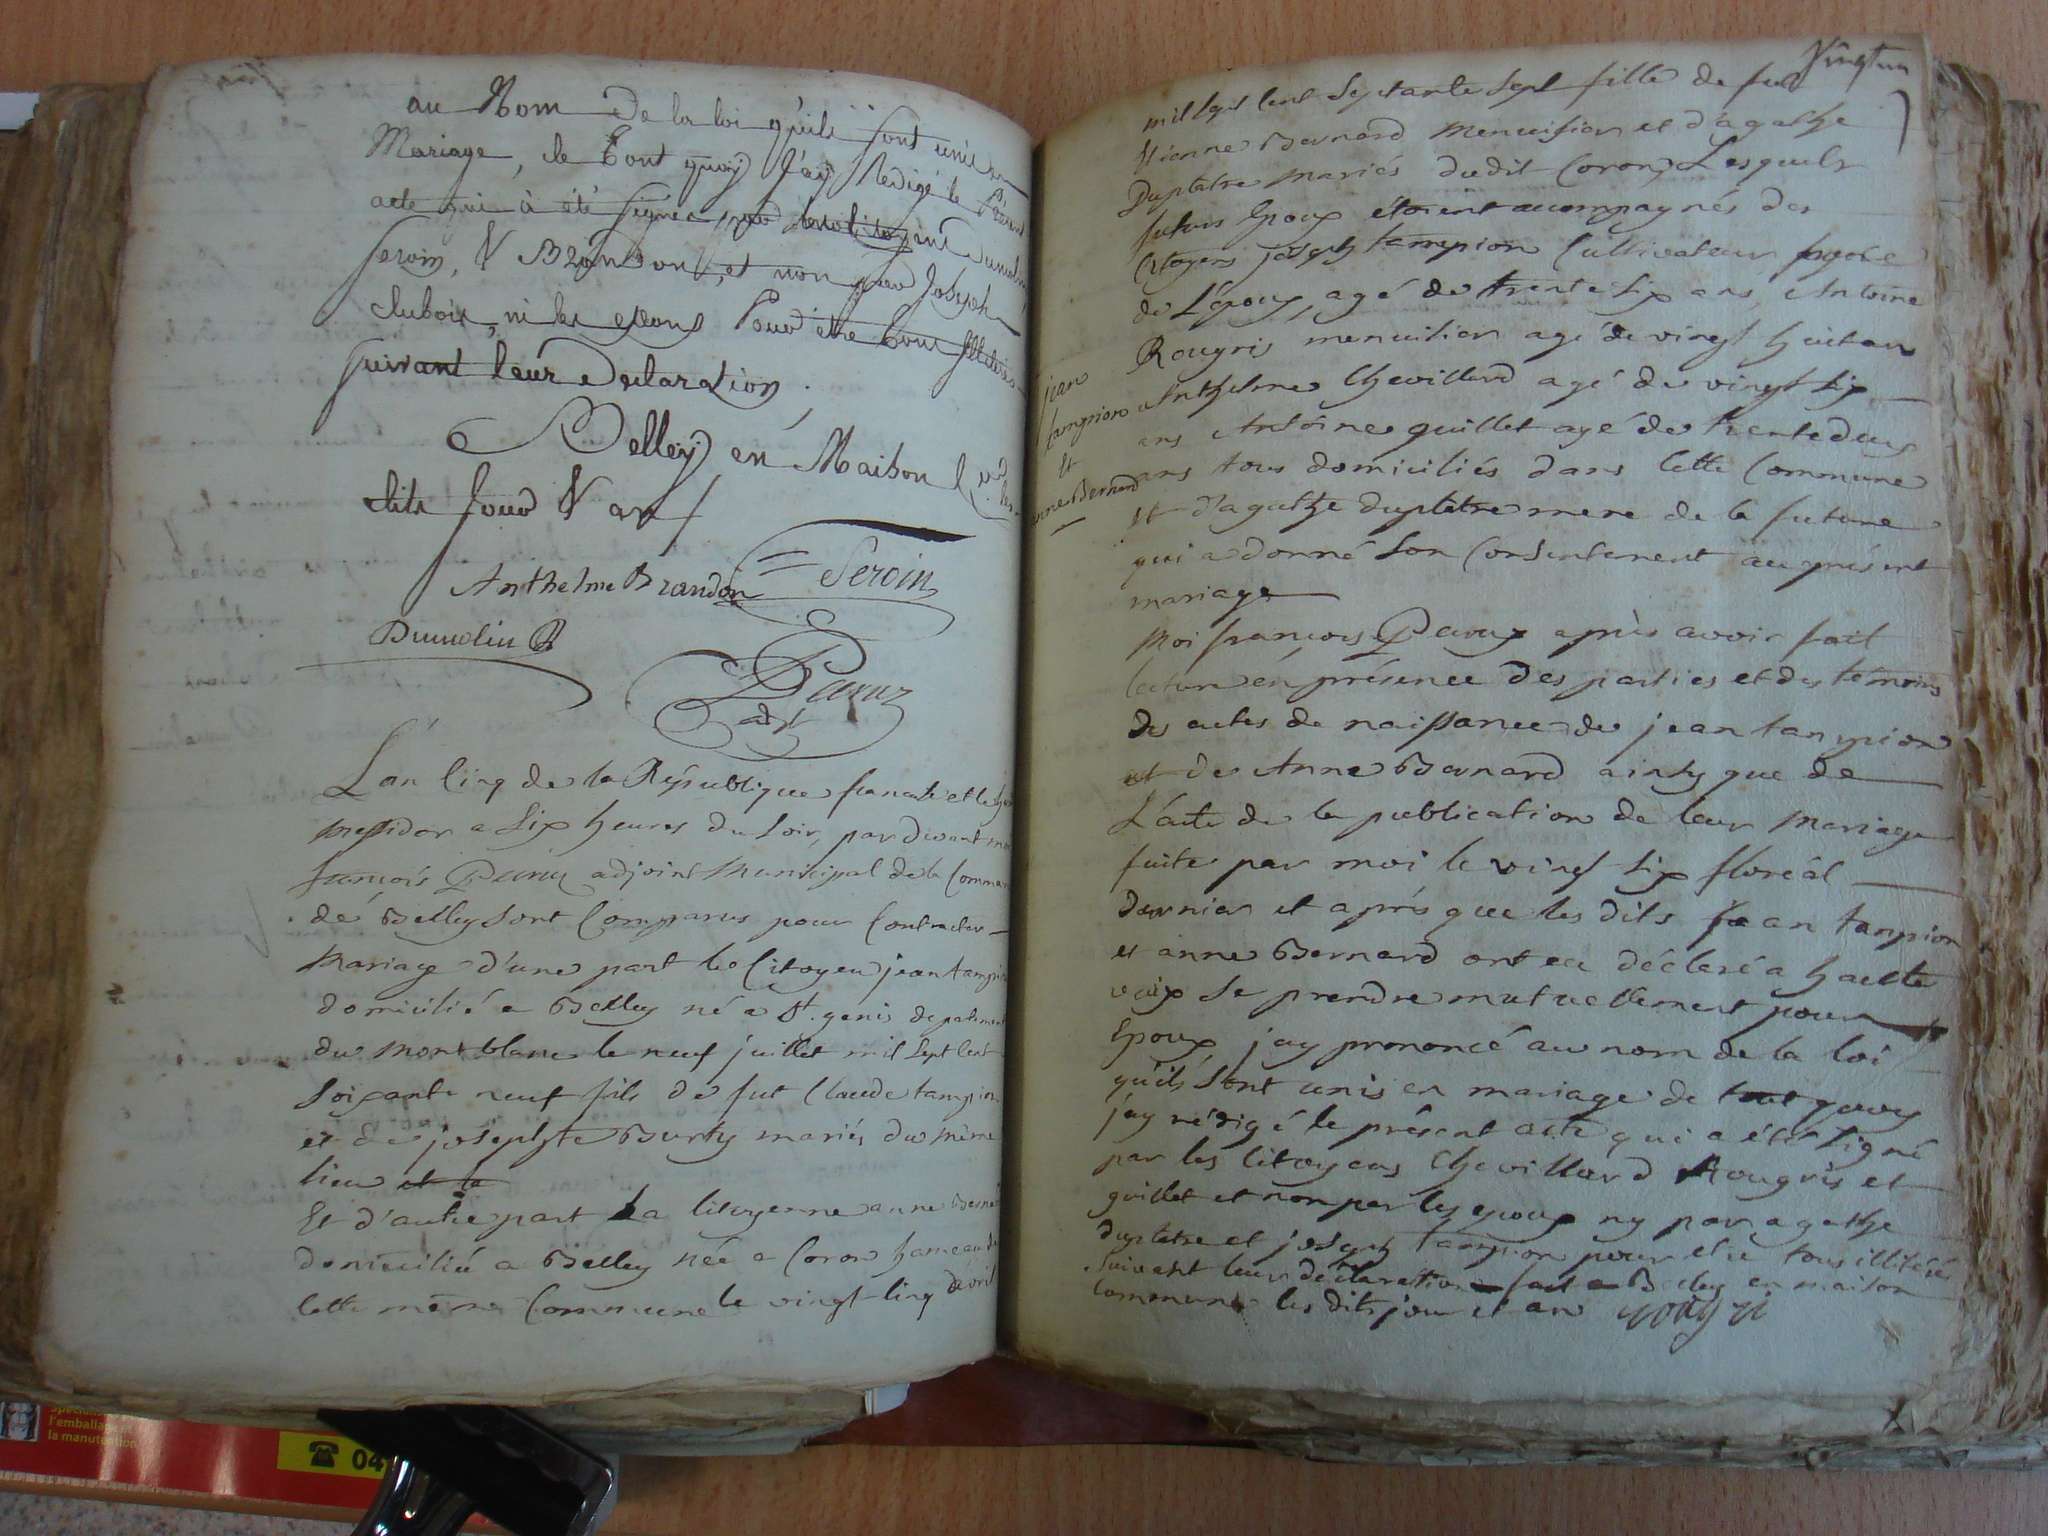 au Nom De la loi qu'ils sont unis en
Mariage, de Tout quoy J'ay Redigé le Présent
acte qui à été signé, par
Feroin, V Brandon, et non par Joseph
dubois, ni les epoux Pour être tous illiterés
suivant leur Declaration.
à Belley en Maison Cne les
dits jour & an
Anthelme Brandon Feroin
Dumolin
Peruz
adjt
L'an Cinq de la République francaise et le
Messidor a Six heures du soir, par devant moi
françois Peruz adjoint Municipal de la Commune
de Belley sont Comparus pour Contracter
Mariage d'une part le Citoyen jean tampion
domicilié a Belley né a St. genis departement
du Mont blanc le neuf juillet mil Sept Cent
Soixante neuf fils de fut Claude tampion
et de josephte Burty mariés du même
lieu et la
Et d'autre part La Citoyenne anne Bernard
domiciliée a Belley née a Coron hameau de
Cette même Commune le vingt Cinq d'avril
Vingt un
mil Sept Cent Septante Sept fille de fut
Etienne Bernard Menuisier et d'agathe
Duplatre mariés dudit Coron, Lesquels
futurs Epoux étoient accompagnés des
Citoyens joseph tampion Cultivateur frere
de L'époux, agé de trente six ans, Antoine
Rougris menuisier agé de vingt huit ans
Anthelme Chevillard agé de vingt six
ans Antoine guillet agé de trente deux
ans tous domiciliés dans Cette Commune
Et d'agathe duplatre mere de la future
qui a donné Son Consentement au présent
mariage
jean
tampion
Et
anne Bernard
Moi françois Peruz après avoir fait
lecture en présence des parties et des témoins
des actes de naissance de jean tampion
et de Anne Bernard ainsy que de
L'acte de la publication de leur Mariage
faite par moi le vingt six floréal
dernier et après que les dits Jean tampion
et anne Bernard ont eu déclaré a haute
voix Se prendre mutuellement pour
Epoux j'ay prononcé au nom de la loi
qu'ils sont unis en mariage de tout quoy
j'ay rédigé le présent acte qui a été signé
par les Citoyens Chevillard Rougris et
guillet et non par les epoux ny par agathe
duplatre et joseph tampion pour etre tous illiterés
Suivant leur déclaration fait a Belley en maison
Commune les dits jour et an rougri
l'emballage
la manutention
04